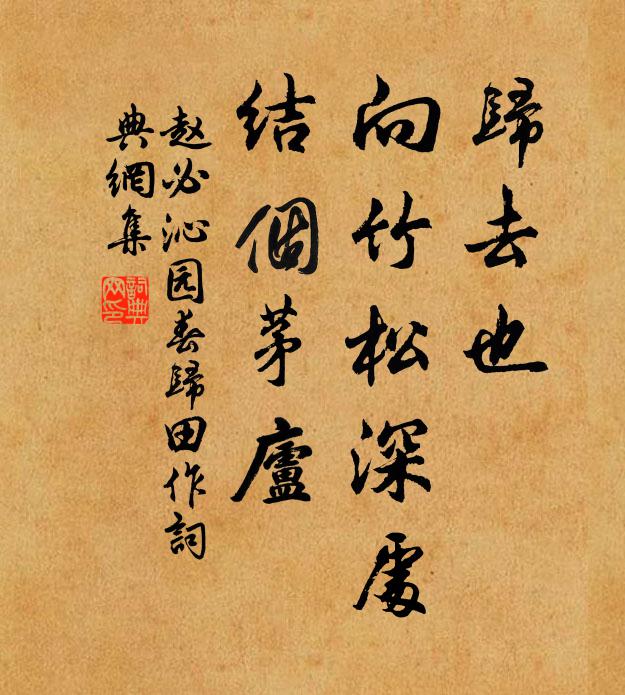 歸去也
向竹松深處
結個茅廬
赵必沁园春歸田作詞
典網集
詞典
网印